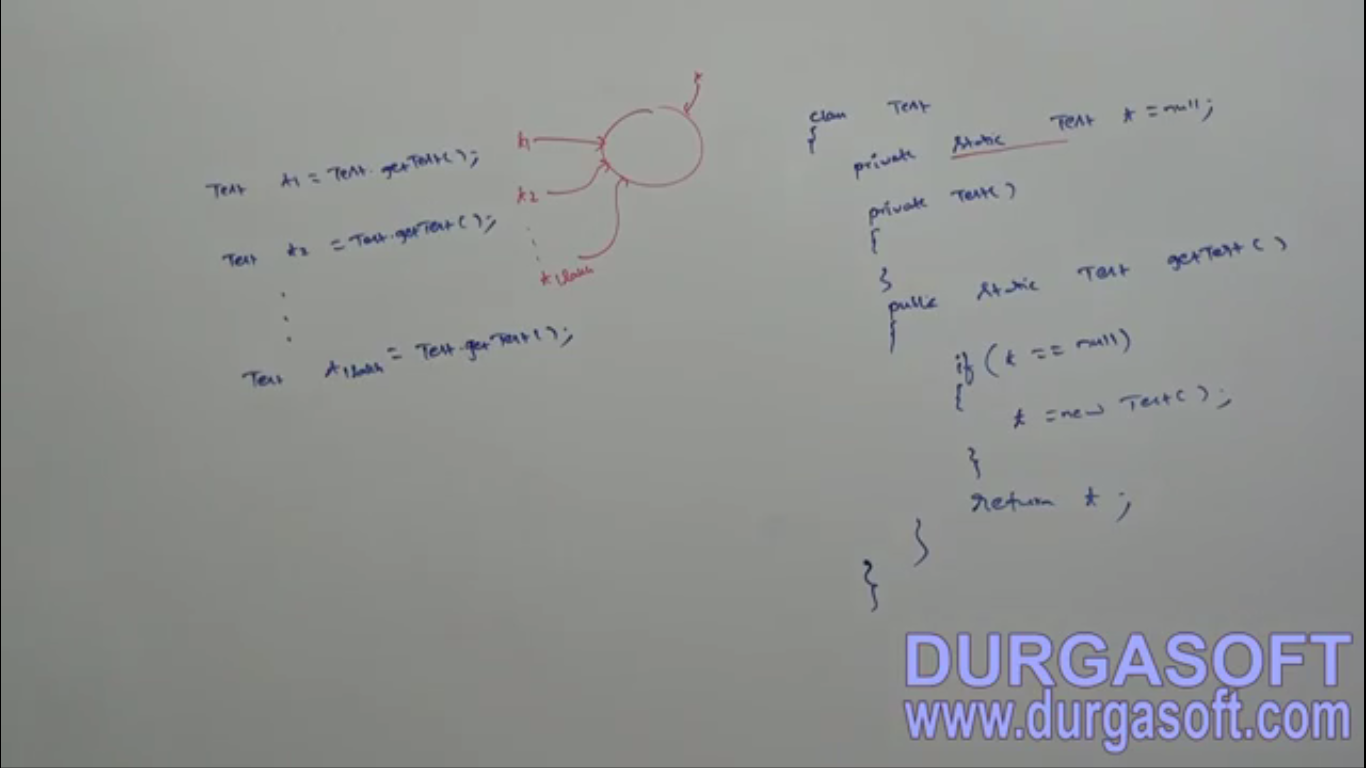 Test t1 = Test.getTest();
Test t2 = Test.getTest();
Test t1lakh = Test.getTest();
t
t1
t2
t1lakh
class Test
{
private static Test t = null;
private Test()
{
}
public static Test getTest()
{
if (t == null)
{
t = new Test();
}
return t;
}
}
DURGASOFT
www.durgasoft.com